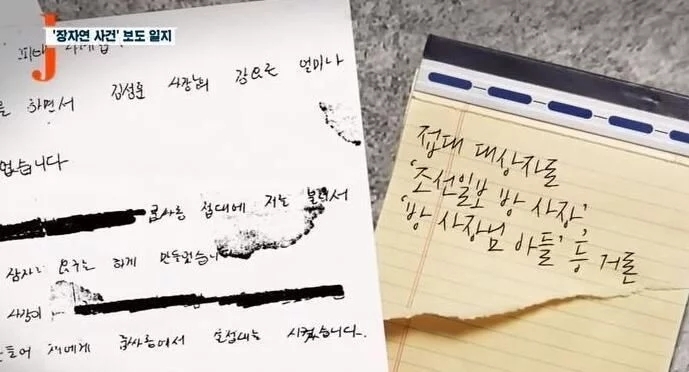 '장자연 사건' 보도 일지
J
하면서 김성훈 사장님의 강요로 얼마나
었습니다
룸싸롱 접대에 저를 불러서
요구를 하게 만들었습니다.
룸싸롱에서 술접대를 시켰습니다.
접대 대상자들
'조선일보 방 사장'
'방 사장님 아들' 등 거론